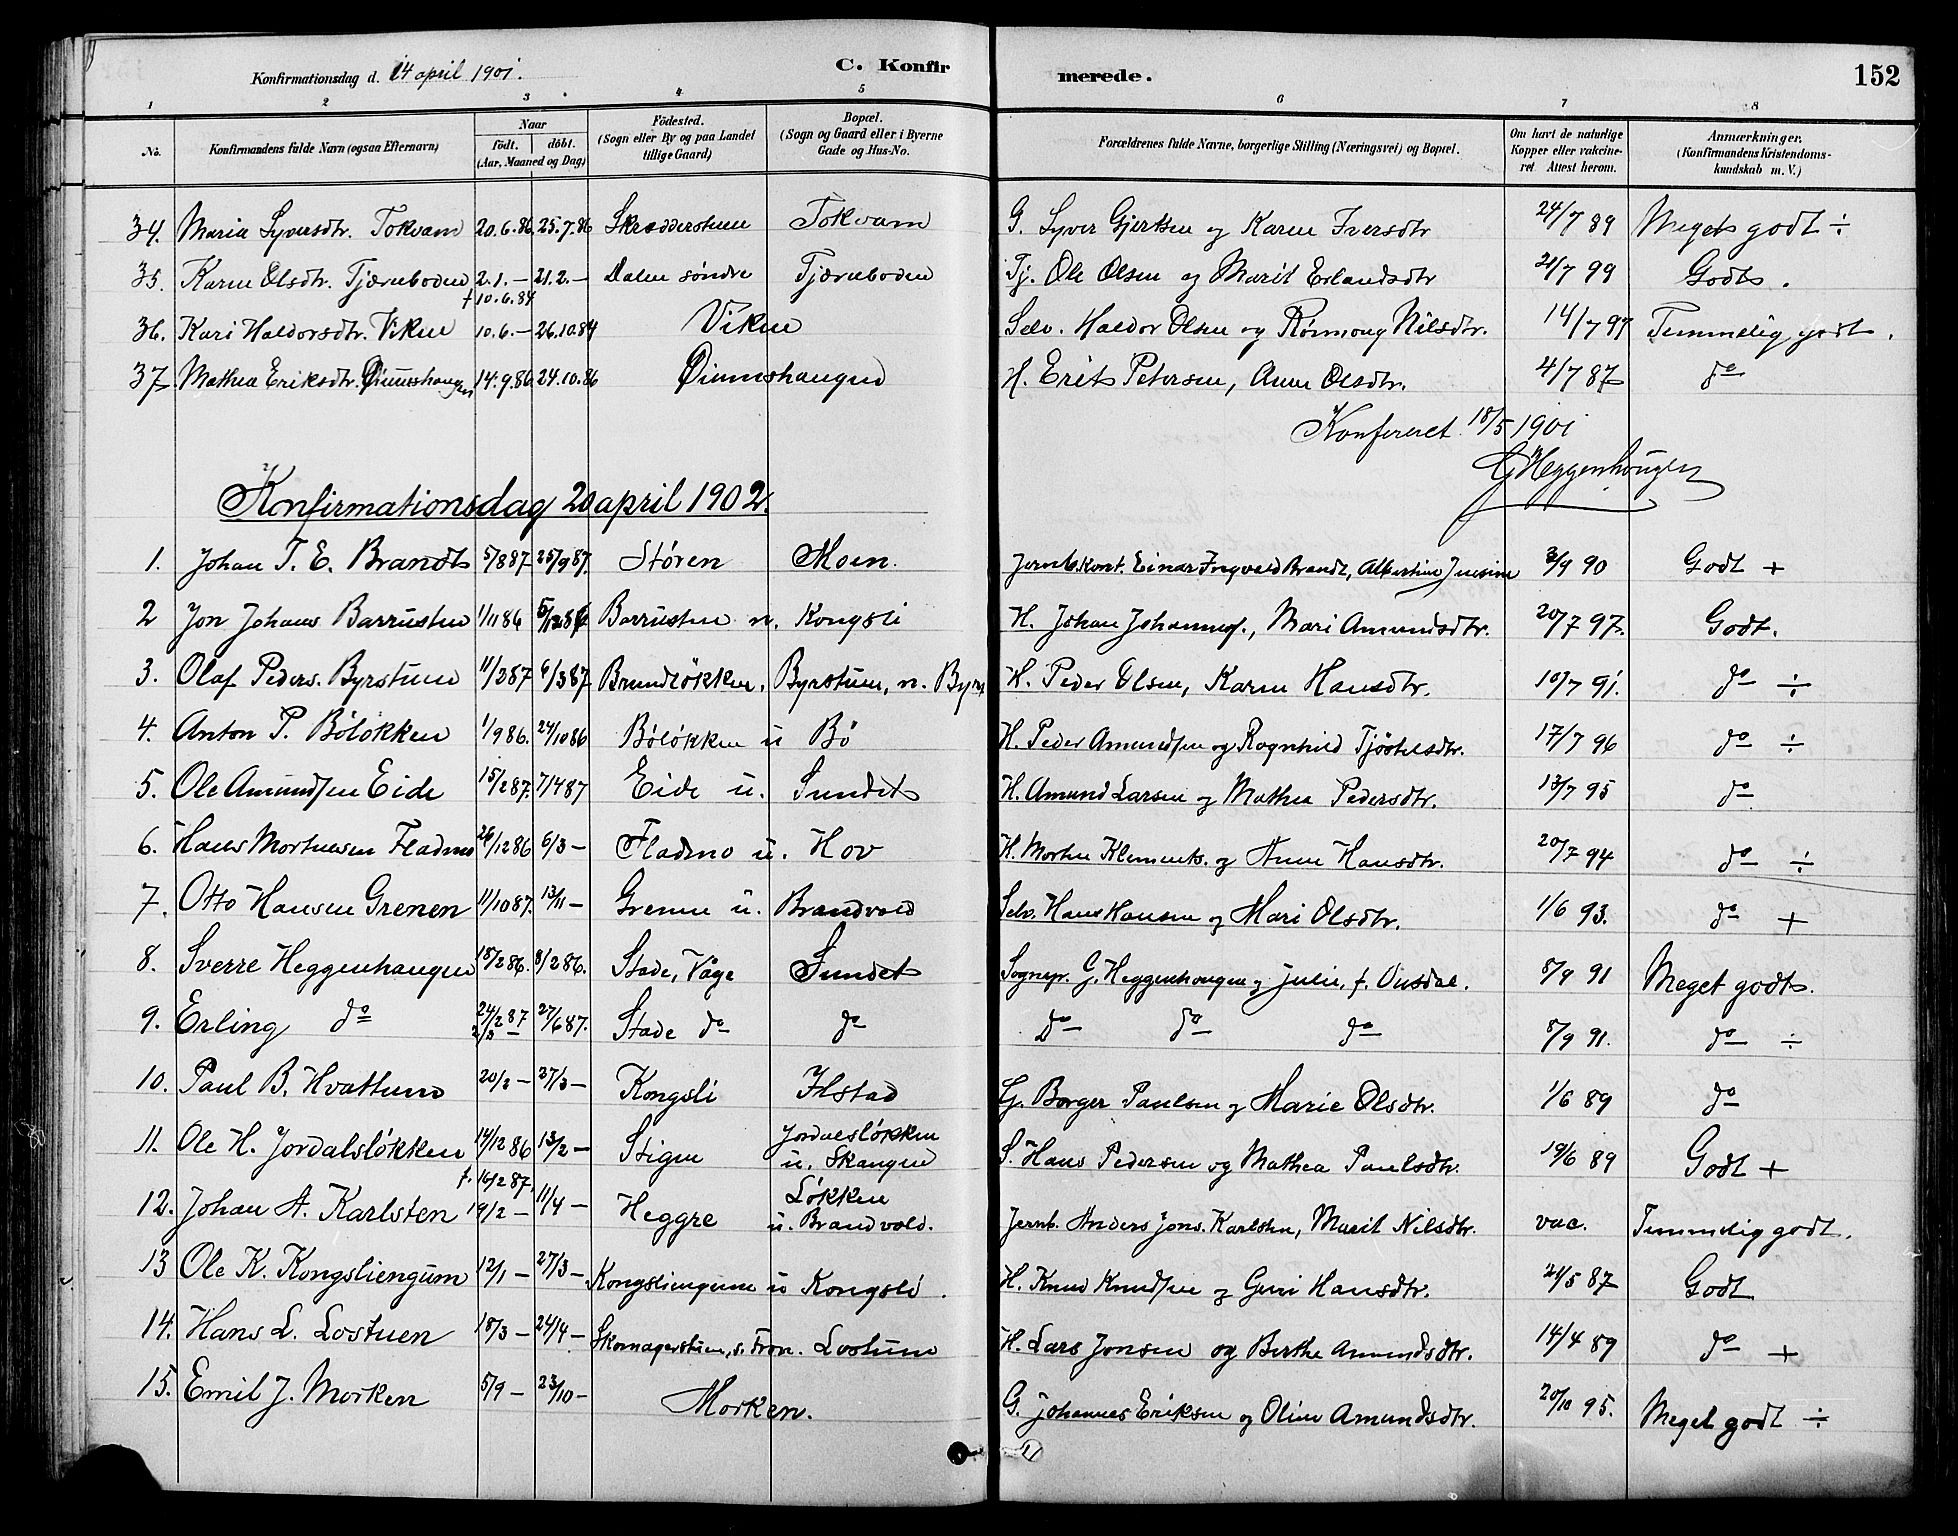 Konfirmationsdag d. 14 april 1901. C. Konfirmerede. 152
1 2 3 4 5 6 7 8
No. Konfirmandens fulde Navn (ogsaa Efternavn) Naar födt. döbt. (Aar, Maaned og Dag) Födested. (Sogn eller By og paa Landet tillige Gaard) Bopæl. (Sogn og Gaard eller i Byerne Gade og Hus-No. Forældrenes fulde Navne, borgerlige Stilling (Næringsvei) og Bopæl. Om havt de naturlige Kopper eller vakcineret Attest herom. Anmærkninger. (Konfirmandens Kristendomskundskab m. V.)
34. Maria Syversdtr. Tokvam 20.6.86 25.7.86 Skrædderstuen Tokvam G. Syver Gjertsen og Karen Iversdtr 24/7 89 Meget godt ÷
35. Karen Olsdtr. Tjærneboden 2.1.– 21.2.– Dalen söndre Tjærneboden Tj. Ole Olsen og Marit Erlandsdtr 21/7 99 Godt.
f 10.6.84
36. Kari Haldorsdtr. Viken 10.6.– 26.10.84 Viken Selv. Haldor Olsen og Rönnoug Nilsdtr. 14/7 97 Temmelig godt.
37. Mathea Eriksdtr. 14.9.86 24.10.86 H. Erik Petersen, Anne Olsdtr. 4/7 87 do
Konfereret 18/5 1901
G Heggenhougen
Konfirmationsdag 20 april 1902.
1. Johan T. E. Brandt 5/8 87 25/9 87. Støren Moen. Jernb.kont. Einar Ingvald Brandt, Albertine 3/9 90 Godt +
2 Jon Johans Barrusten 1/11 86 5/12 86 Barrusten n. Kongsli H. Johan Johannes., Mari Amundsdtr. 20/7 97. Godt.
3. Olaf Peders. Byrstuen 11/2 87 6/3 87 Brundløkken, Byrstuen, n. Byre H. Peder Olsen, Karen Hansdtr. 10/7 91. do ÷
4. Anton P. Bøløkken 1/9 86. 24/10 86 Bøløkken u Bö H. Peder Amundsen og Ragnhild Tjöstelsdtr. 17/7 96 do ÷
5. Ole Amundsen Eide 15/2 87. 7/4 87 Eide u. Sundet H. Amund Larsen og Mathea Pedersdtr. 13/7 95 do
6. Hans Mortensen Fladmo 26/12 86 6/3 – Fladmo u. Hov H. Morten Klements. og Anne Hansdtr. 20/7 94 do ÷
7. Otto Hansen Grenen 11/10 87. 13/11 – Grenen u. Brandvold Selv. Hans Hansen og Mari Olsdtr. 1/6 93. do +
8. Sverre Heggenhaugen 18/2 86. 8/2 86. Stade, Våge Sundet Sognepr. G. Heggenhougen og Julie, f. 8/9 91 Meget godt.
9. Erling do 24/2 87 27/6 87. Stade do do do do do 8/9 91. do ÷
2/3 –
10. Paul B. Hvattum 20/2 – 27/3 – Kongsli Ilstad G. Borger Paulsen og Marie Olsdtr. 1/6 89 do
11. Ole H. Jordalsløkken 14/12 86 13/2 – Stigen Jordalsløkken u. Skaugen S. Hans Pedersen og Mathea Paulsdtr. 19/6 89 Godt +
f. 16/2 87,
12. Johan A. Karlsten 19/2 – 11/4 – Heggre Løkken u. Brandvold. Jernb. Anders Jons. Karlsten, Marit Nilsdtr. vac. Temmelig godt.
13 Ole K. Kongsliengum 12/1 – 27/3 – Kongsliengene u Kongsli. H. Knud Knudsen og Guri Hansdtr. 21/5 87 Godt
14. Hans L. Lostuen 18/3 – 24/4 – Skomagerstuen, s. Fron. Lostuen H. Lars Jonsen og Berthe Amundsdtr. 14/4 89 do +
15. Emil J. Morken 5/9 – 23/10 – Morken. G. Johannes Eriksen og Oline Amundsdtr. 20/10 95. Meget godt ÷